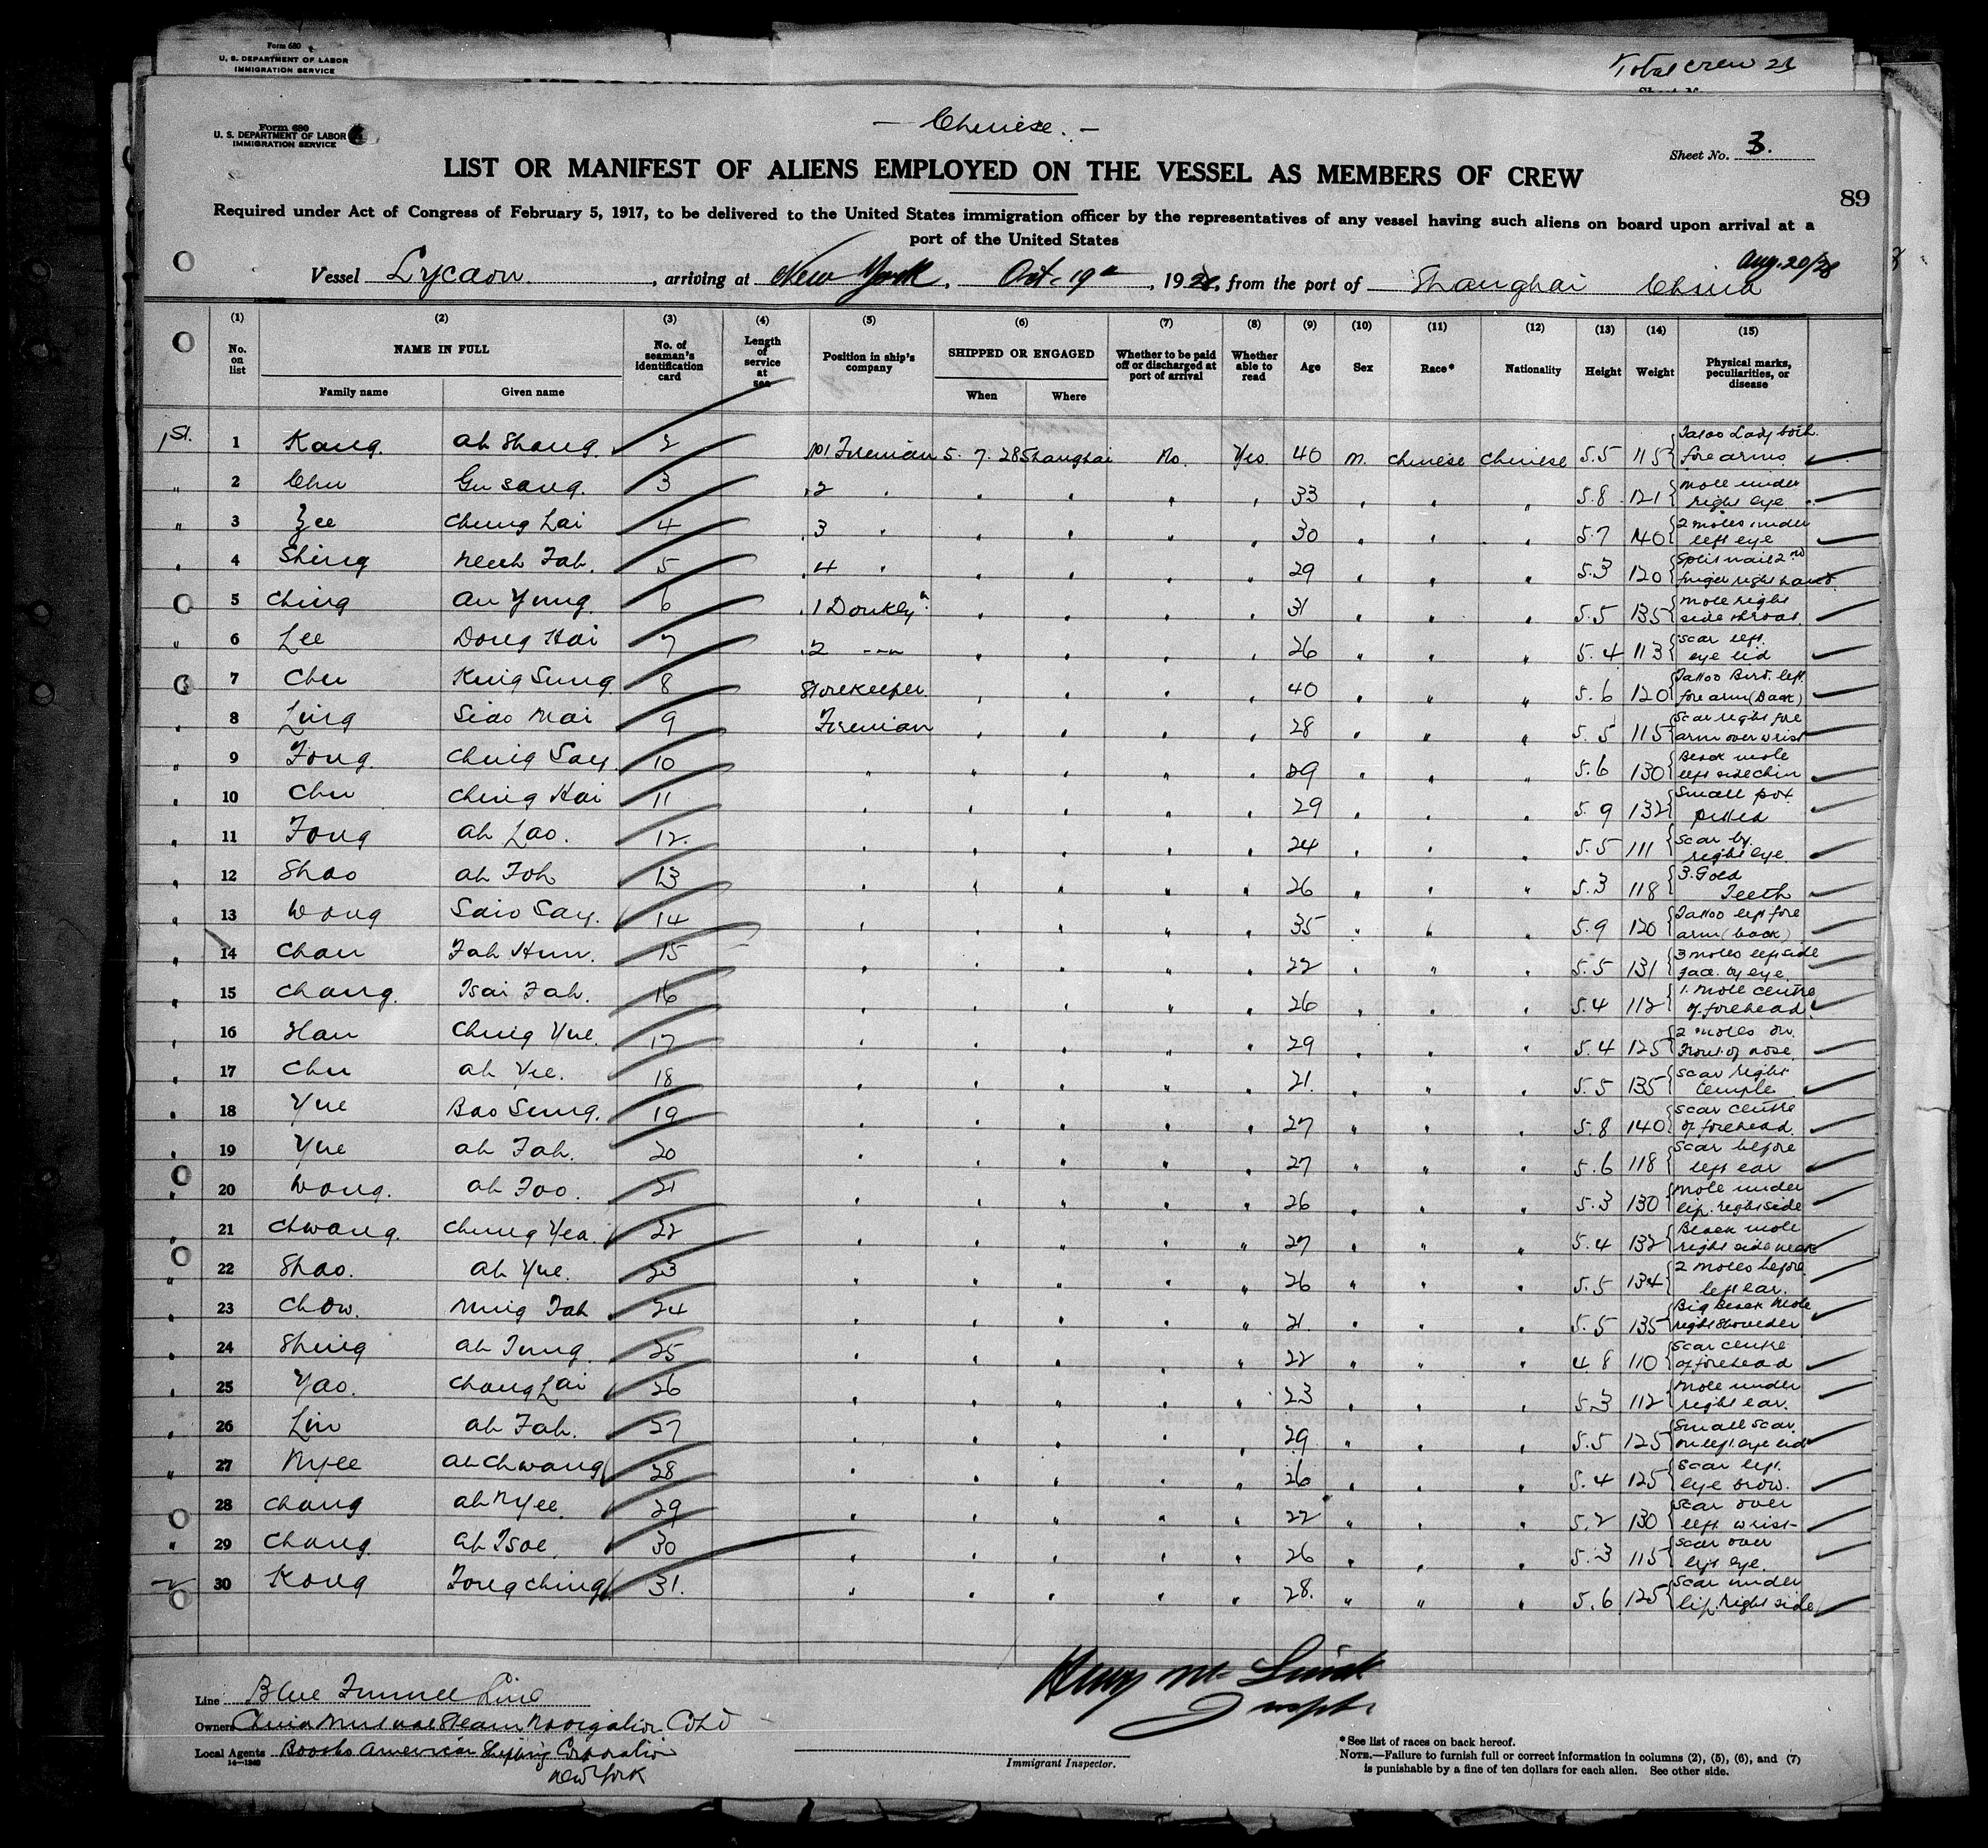 Form 680
U. S. DEPARTMENT OF LABOR
IMMIGRATION SERVICE
Total Crew
Form 680
U. S. DEPARTMENT OF LABOR
IMMIGRATION SERVICE
— Chinese. —
Sheet No. 3.
LIST OR MANIFEST OF ALIENS EMPLOYED ON THE VESSEL AS MEMBERS OF CREW
89
Required under Act of Congress of February 5, 1917, to be delivered to the United States immigration officer by the representatives of any vessel having such aliens on board upon arrival at a
port of the United States
Aug. 20/28
Vessel Lycaon, arriving at New York, Oct. 19th, 1928, from the port of Shanghai China
(1) (2) (3) (4) (5) (6) (7) (8) (9) (10) (11) (12) (13) (14) (15)
No. on list NAME IN FULL No. of seaman's identification card Length of service at sea Position in ship's company SHIPPED OR ENGAGED Whether to be paid off or discharged at port of arrival Whether able to read Age Sex Race* Nationality Height Weight Physical marks, peculiarities, or disease
Family name Given name When Where
1st. 1 Kang. Ah Shang. 2 No1 Fireman 5. 7. 28 Shanghai No. Yes. 40 M. Chinese Chinese 5.5 115 Tatoo Lady both forearms
" 2 Chu Gu Sang. 3 .2 " " " " " 33 " " " 5.8 121 Mole under right eye
" 3 Zee Chung Lai 4 .3 " " " " " 30 " " " 5.7 140 2 moles under left eye
" 4 Shing Neeh Fah. 5 .4 " " " " " 29 " " " 5.3 120 Split nail 2nd finger right hand
" 5 Ching Au Yung. 6 .1 Donkeyn. " " " " 31 " " " 5.5 135 Mole right side throat
" 6 Lee Dong Kai 7 .2 --- " " " " 26 " " " 5.4 113 Scar left eye lid
" 7 Chu King Sung 8 Storekeeper. " " " " 40 " " " 5.6 120 Tattoo Bird. left forearm (Back)
" 8 Ling Siao Mai 9 Fireman " " " " 28 " " " 5.5 115 Scar right fore arm over wrist
" 9 Fong. Ching Say. 10 " " " " " 29 " " " 5.6 130 Black mole left side chin
" 10 Chu Ching Kai 11 " " " " " 29 " " " 5.9 132 Small pox pitted
" 11 Fong Ah Lao. 12. " " " " " 24 " " " 5.5 111 Scar by right eye
" 12 Shao Ah Foh 13 " " " " " 26 " " " 5.3 118 3. Gold Teeth
" 13 Wong Saio Say. 14 " " " " " 35 " " " 5.9 120 Tattoo left fore arm (back)
" 14 Chan Fah Hun. 15 " " " " " 22 " " " 5.5 131 3 moles left side face by eye
" 15 Chang. Tsai Fah. 16 " " " " " 26 " " " 5.4 112 1. Mole centre of forehead
" 16 Han Ching Yue. 17 " " " " " 29 " " " 5.4 125 2 moles on Front of nose
" 17 Chu Ah Yee. 18 " " " " " 21. " " " 5.5 135 Scar right temple
" 18 Yue Bao Sung. 19 " " " " " 27 " " " 5.8 140 Scar centre of forehead
" 19 Yue Ah Fah. 20 " " " " " 27 " " " 5.6 118 Scar before left ear
" 20 Wong. Ah Foo. 21 " " " " " 26 " " " 5.3 130 Mole under lip. right side
" 21 Chwang. Chung Yea. 22 " " " " " 27 " " " 5.4 132 Black mole right side neck
" 22 Shao. Ah Yue. 23 " " " " " 26 " " " 5.5 134 2 moles before left ear.
" 23 Chow. Ming Fah 24 " " " " " 21. " " " 5.5 135 Big Black Mole right shoulder
" 24 Shing Ah Tung. 25 " " " " " 22 " " " 4 8 110 Scar centre of forehead
" 25 Yao. Chang Lai 26 " " " " " 23 " " " 5.3 112 Mole under right ear.
" 26 Lin Ah Fah. 27 " " " " " 29 " " " 5.5 125 Small scar on left eye lid
" 27 Nyee Ah Chwang 28 " " " " " 26 " " " 5.4 125 Scar left eye brow.
" 28 Chang Ah Nyee. 29 " " " " " 22 " " " 5.2 130 Scar over left wrist
" 29 Chang. Ah Tsoe. 30 " " " " " 26 " " " 5.3 115 Scar over left eye.
" 30 Kong Fong Ching 31. " " " " " 28. " " " 5.6 125 Scar under lip. right side
Line Blue Funnel Line
Owners China Mutual Steam Navigation Co Ltd
Local Agents Booths American Shipping Corporation
New York
14—1240
Immigrant Inspector.
*See list of races on back hereof.
NOTE.—Failure to furnish full or correct information in columns (2), (5), (6), and (7)
is punishable by a fine of ten dollars for each alien. See other side.